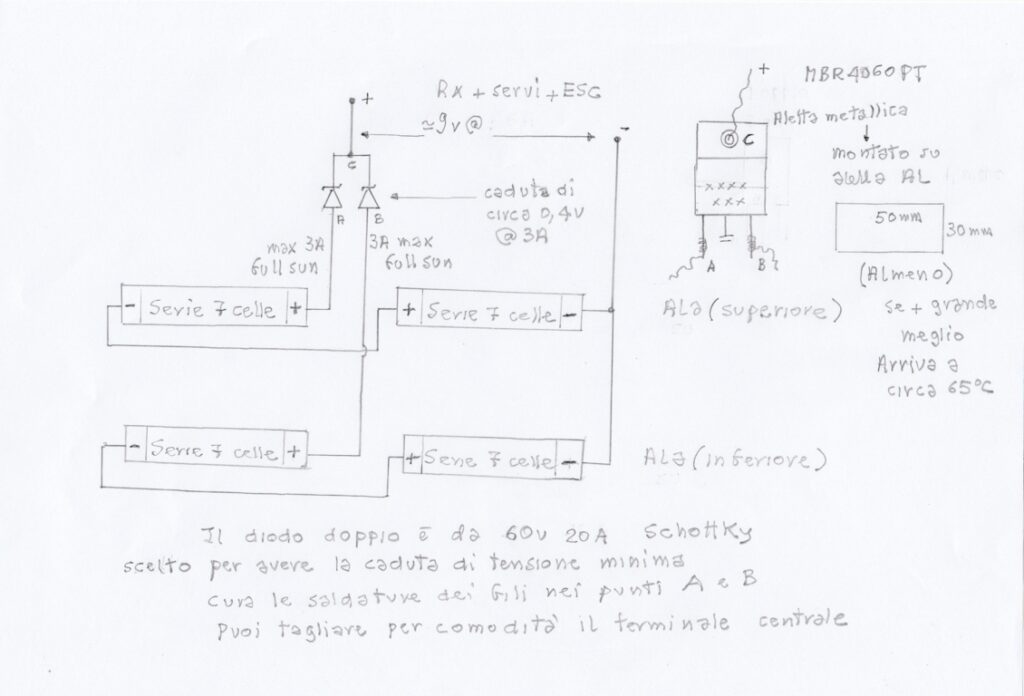 RX + servi + ESC
+
≃9v@
-
C
A
B
caduta di
circa 0,4v
@ 3A
max 3A
full sun
3A max
full sun
- Serie 7 celle +
+ Serie 7 celle -
ALA (superiore)
- Serie 7 celle +
+ Serie 7 celle -
ALA (inferiore)
+
MBR4060PT
Aletta metallica
C
montato su
aletta AL
xxxx
xxx
A
B
50mm
30mm
(Almeno)
se + grande
meglio
Arriva a
circa 65°C
Il diodo doppio è da 60v 20A Schottky
scelto per avere la caduta di tensione minima
cura le saldature dei fili nei punti A e B
Puoi tagliare per comodità il terminale centrale